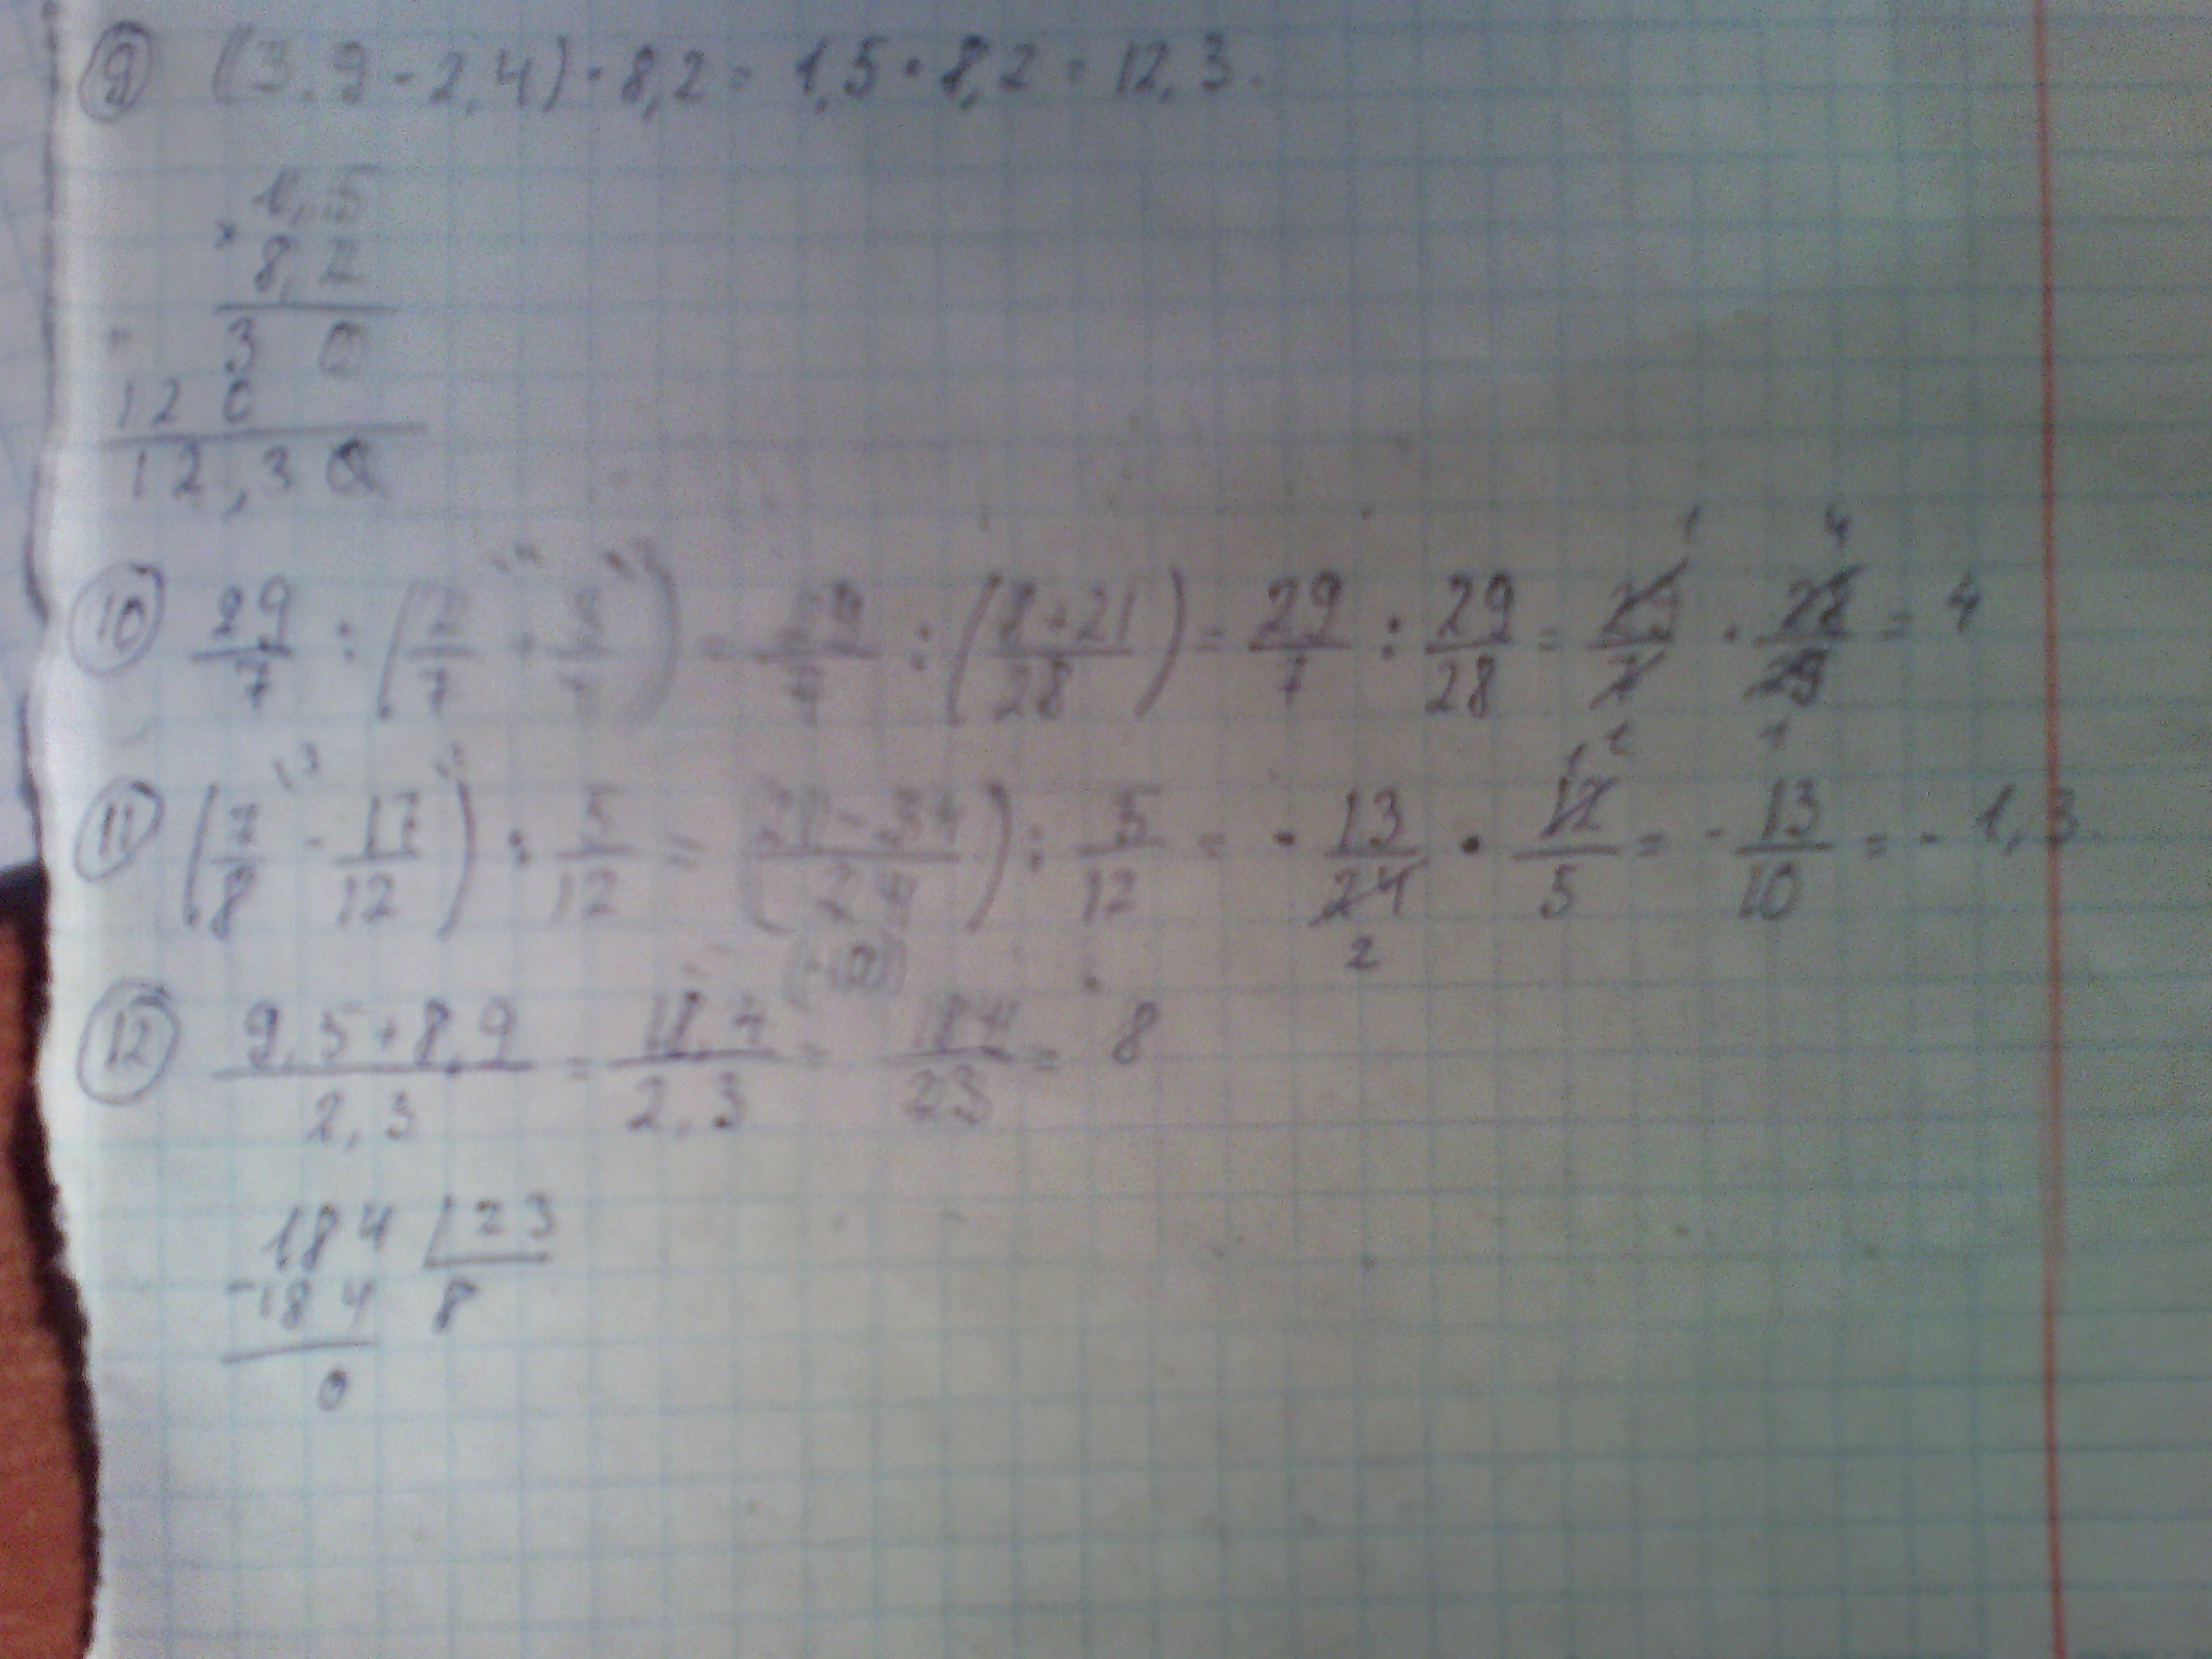 9 (3,9 - 2,4) · 8,2 = 1,5 · 8,2 = 12,3.
1,5
× 8,2
3 0
12 0
12,3 0
10 29/7 : (2/7 + 3/4) = 29/7 : ((8+21)/28) = 29/7 : 29/28 = 29/7 · 28/29 = 4
11 (7/8 - 17/12) : 5/12 = ((21-34)/24) : 5/12 = - 13/24 · 12/5 = - 13/10 = - 1,3.
12 (9,5+8,9)/2,3 = 18,4/2,3 = 184/23 = 8
184 | 23
-184 8
0